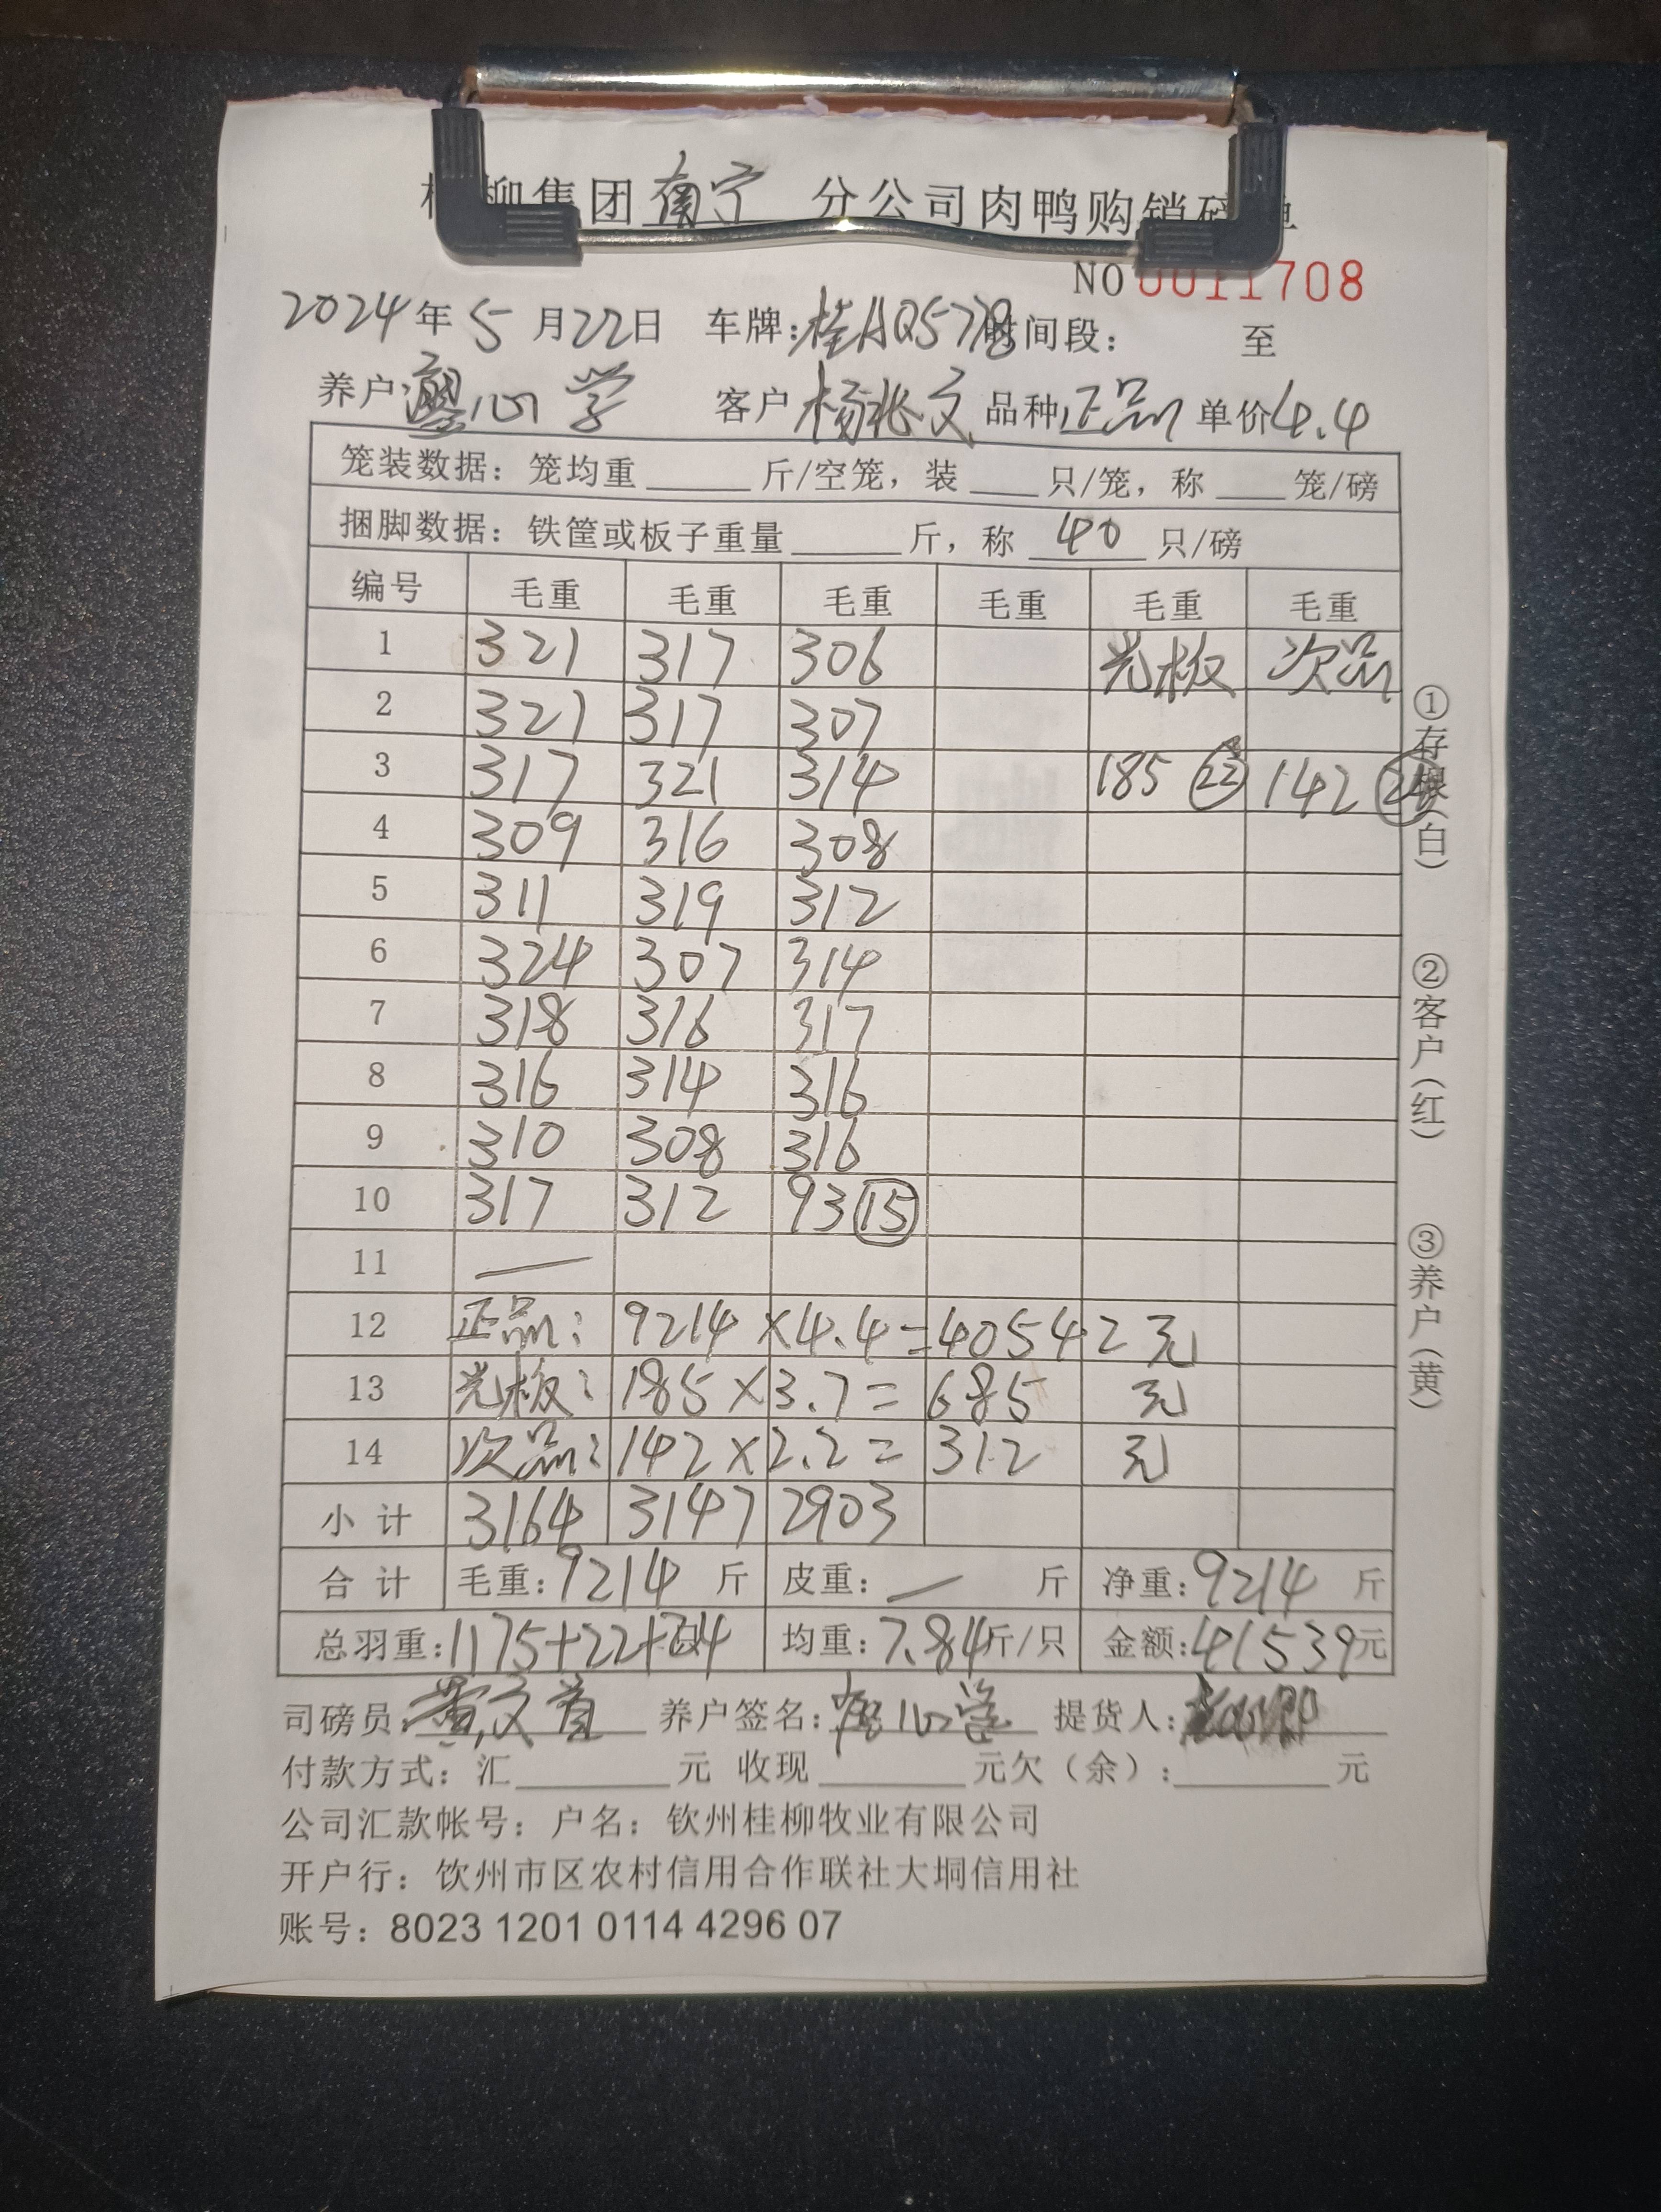 柳集团南宁 分公司肉鸭购销磅单
NO 0011708
2024年5月22日 车牌:桂AQ5778 时间段: 至
养户:廖心学 客户 杨兆文 品种正品 单价4.4
笼装数据: 笼均重____斤/空笼, 装___只/笼, 称___笼/磅
捆脚数据: 铁筐或板子重量____斤, 称 40 只/磅
编号 毛重 毛重 毛重 毛重 毛重 毛重
1 321 317 306 光板 次品
2 321 317 307
3 317 321 314 185 22 142 24
4 309 316 308
5 311 319 312
6 324 307 314
7 318 316 317
8 316 314 316
9 310 308 316
10 317 312 93 15
11 —
12 正品: 9214×4.4=40542元
13 光板: 185×3.7=685 元
14 次品: 142×2.2=312 元
小计 3164 3147 2903
合计 毛重:9214 斤 皮重: — 斤 净重:9214 斤
总羽重:1175+22+24 均重:7.84斤/只 金额:41539元
司磅员: 养户签名: 提货人:
付款方式: 汇____元 收现____元欠(余):____元
公司汇款帐号: 户名: 钦州桂柳牧业有限公司
开户行: 钦州市区农村信用合作联社大垌信用社
账号: 8023 1201 0114 4296 07
①存根(白)
②客户(红)
③养户(黄)